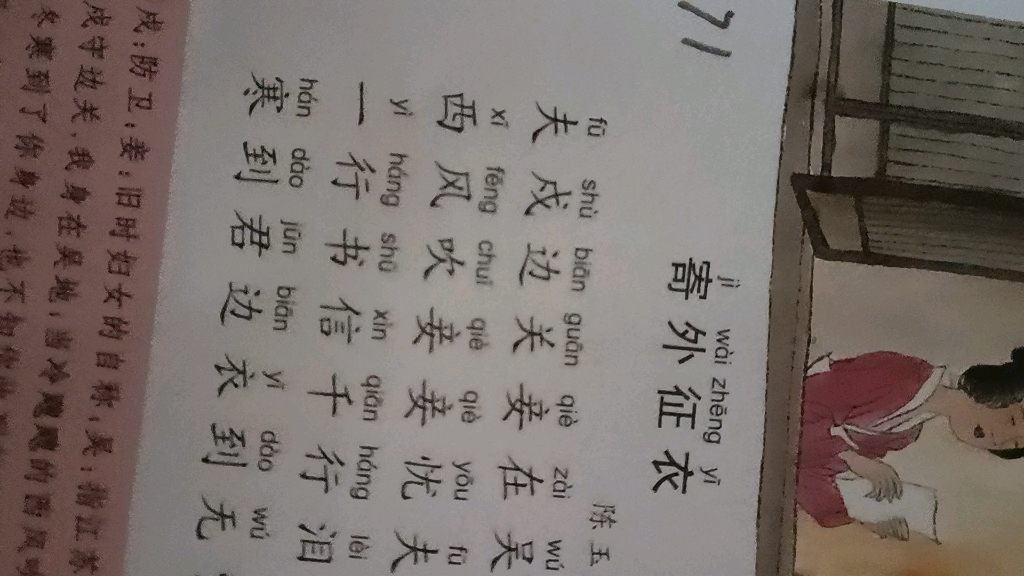 71
jì wài zhēng yī
寄外征衣
陈玉
fū shù biān guān qiè zài wú
夫戍边关妾在吴
xī fēng chuī qiè qiè yōu fū
西风吹妾妾忧夫
yì háng shū xìn qiān háng lèi
一行书信千行泪
hán dào jūn biān yī dào wú
寒到君边衣到无
戍:防卫;妾:旧时妇女的自称;吴:指江苏
戍守边关,我身在吴地,当冷飕飕的西风吹
冬寒到了你身边,也不知